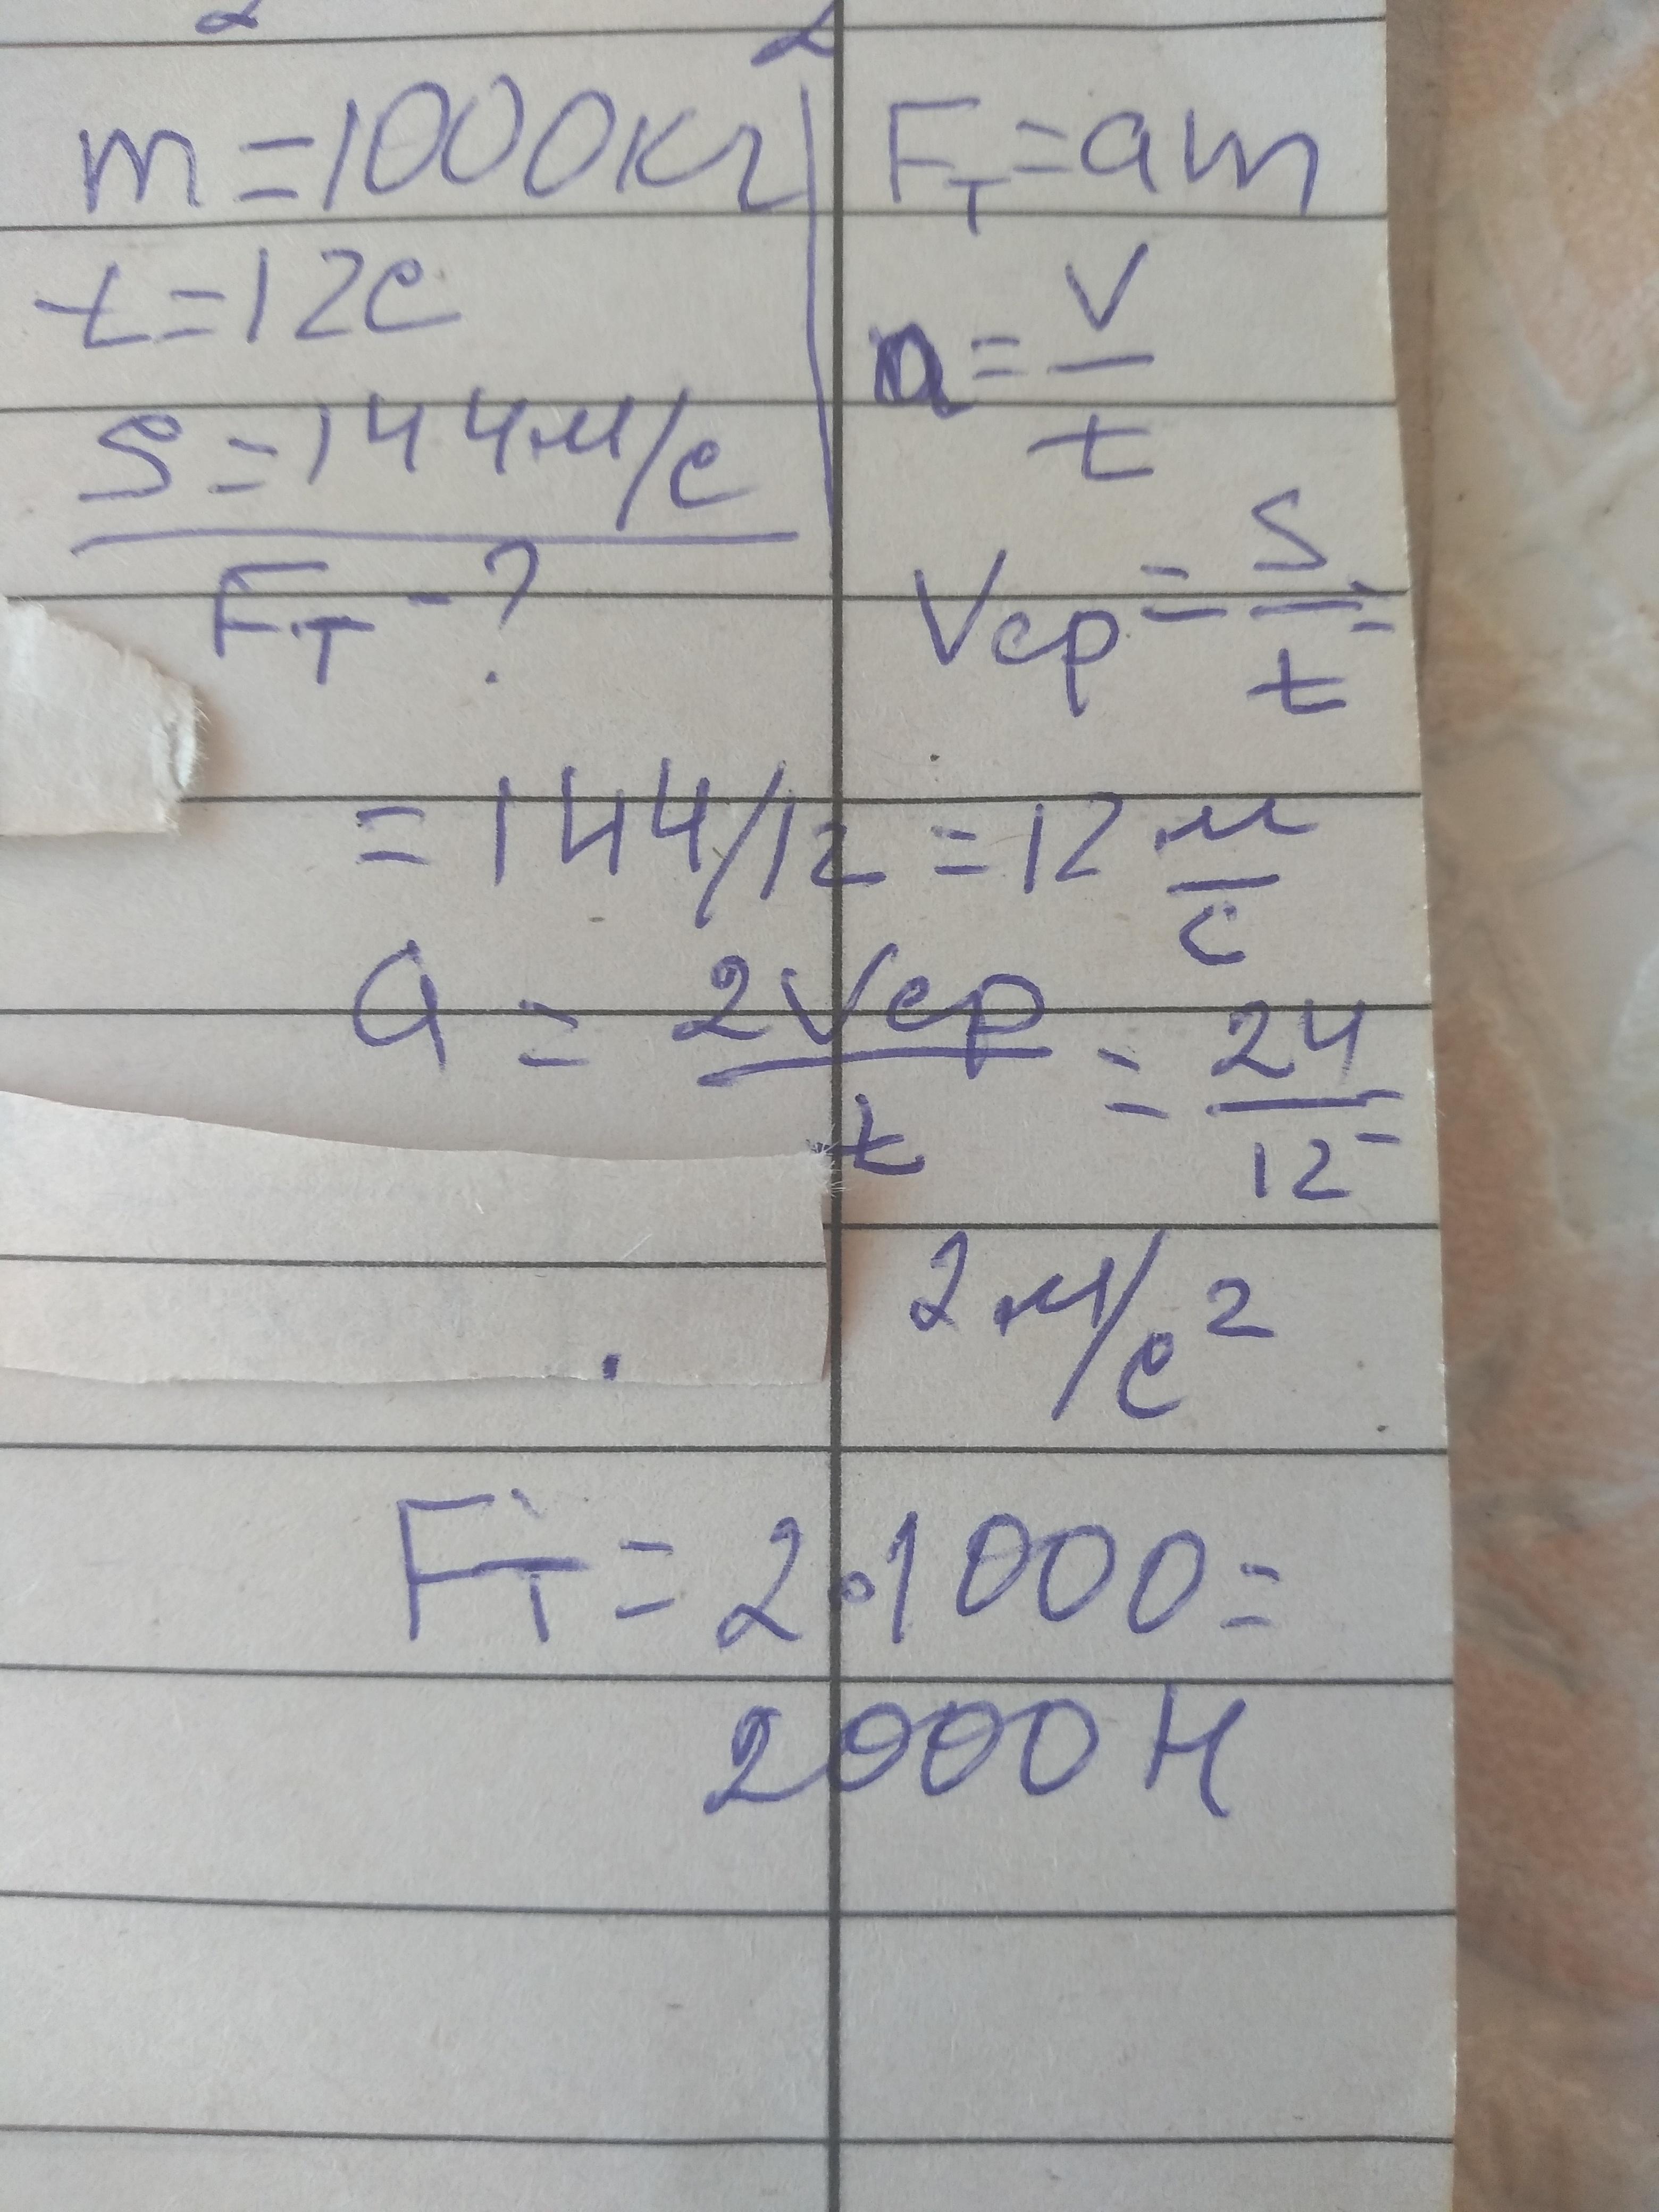 m=1000кг
t=12с
S=144м/с
Fт-?
Fт=am
a=V/t
Vср=S/t=
=144/12=12м/с
a=2Vср/t=24/12=
2м/с²
Fт=2·1000=
2000Н